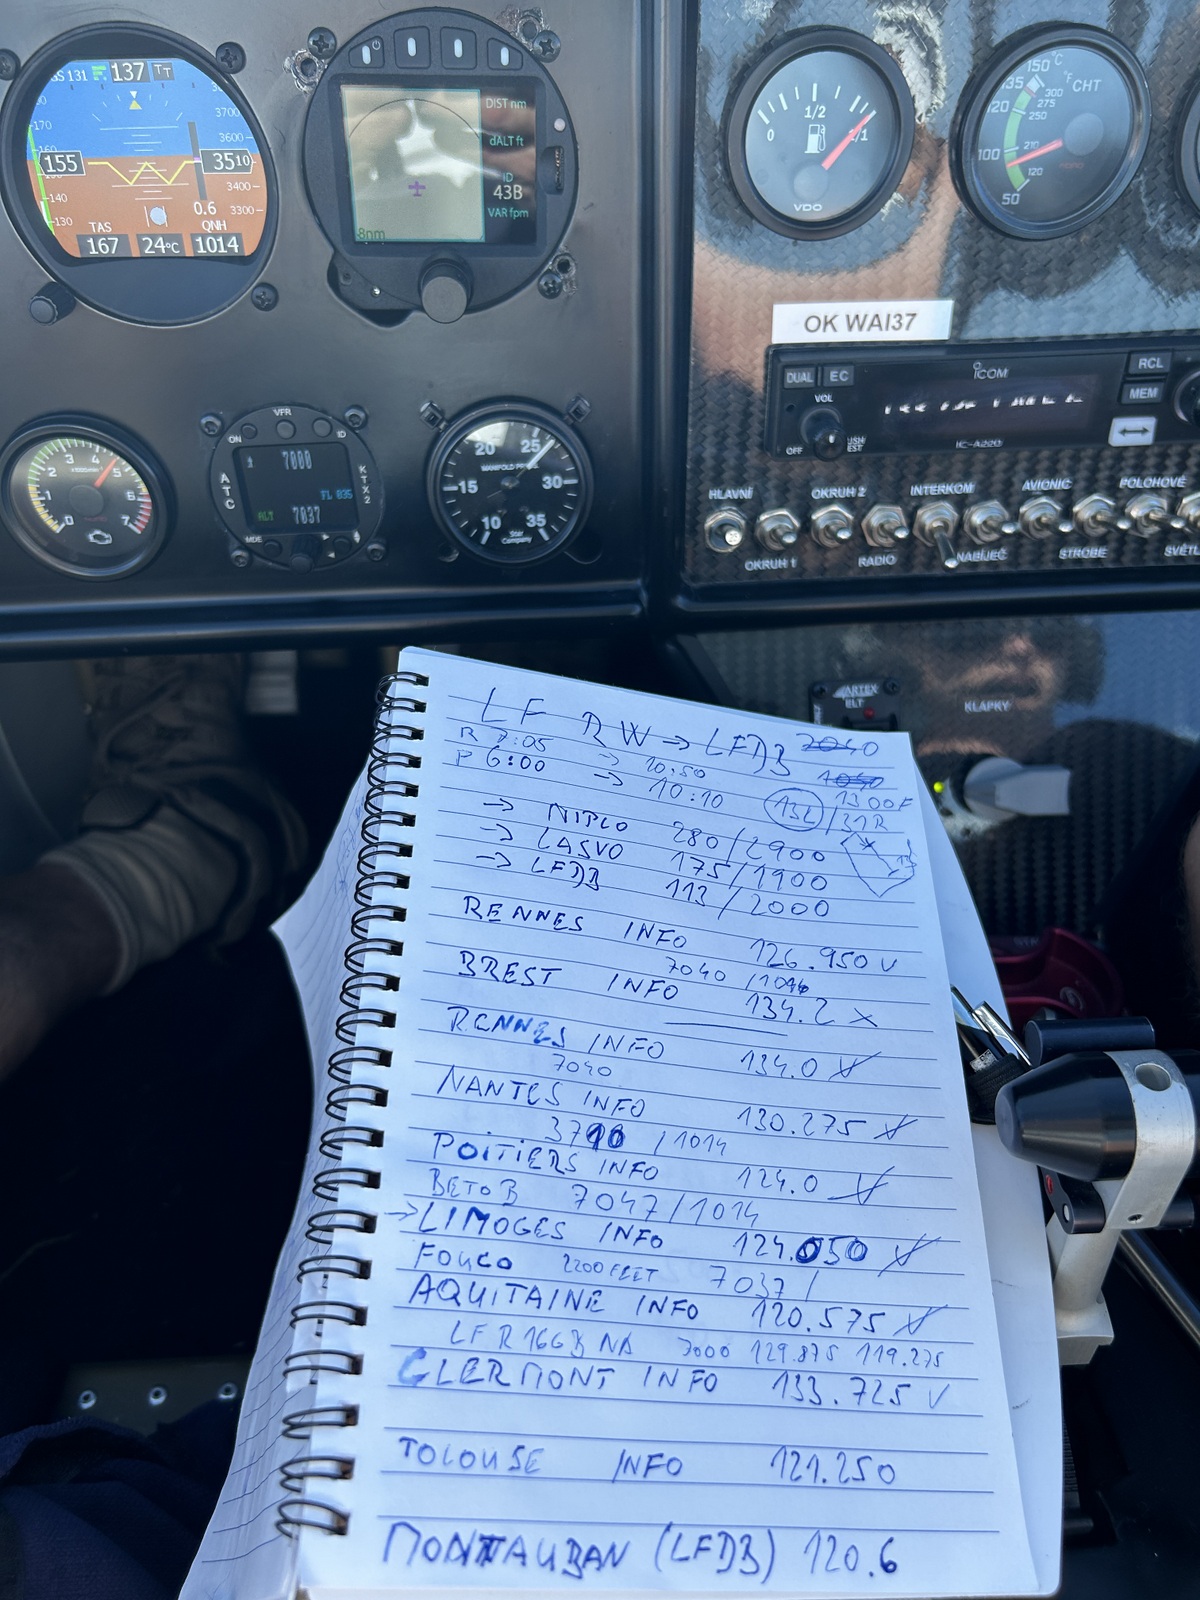 GS 131 137
3700
170
3600
155
3510
140
3400
130
0.6
3300
TAS QNH
167 24°C 1014
DIST nm
dALT ft
ID
43B
VAR fpm
8nm
0 1/2 1/1
VDO
150 °C
135 °F CHT
120 300
275
250
100 210
120
50
OK WAI37
DUAL EC
ICOM
RCL
VOL
MEM
OFF
IC-A220
0 1 2 3 4 5 6 7
VFR
ON ID
7000
ATC
KTX2
FL 035
ALT 7037
MDE
10 15 20 25 30 35
Star Company
HLAVNÍ OKRUH 2 INTERKOM AVIONIC POLOHOVÉ
OKRUH 1 RADIO NABÍJEČ STROBE
ARTEX
ELT
KLAPKY
LF RW → LFDB 2040
R 7:05 → 10:50 1040
P 6:00 → 10:10 13L/31R 1300F
→ NIPLO 280/2900
→ LASVO 175/1900
→ LFDB 113/2000
RENNES INFO 126.950 V
7040 /1014
BREST INFO 134.2 X
RENNES INFO 134.0 V
7040
NANTES INFO 130.275 V
3710 /1014
POITIERS INFO 124.0 V
BETOB 7047/1014
→ LIMOGES INFO 124.050 V
FOUCO 2200 FEET 7037 /
AQUITAINE INFO 120.575 V
LF R 166B NA 7000 129.875 119.275
CLERMONT INFO 133.725 V
TOLOUSE INFO 121.250
MONTAUBAN (LFDB) 120.6